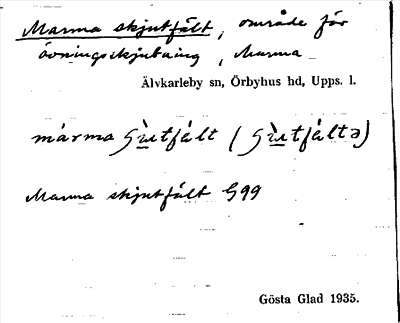 Marma skjutfält, område för
övningsskjutning, Marma
Älvkarleby sn, Örbyhus hd, Upps. l.
Marma skjutfält G99
Gösta Glad 1935.